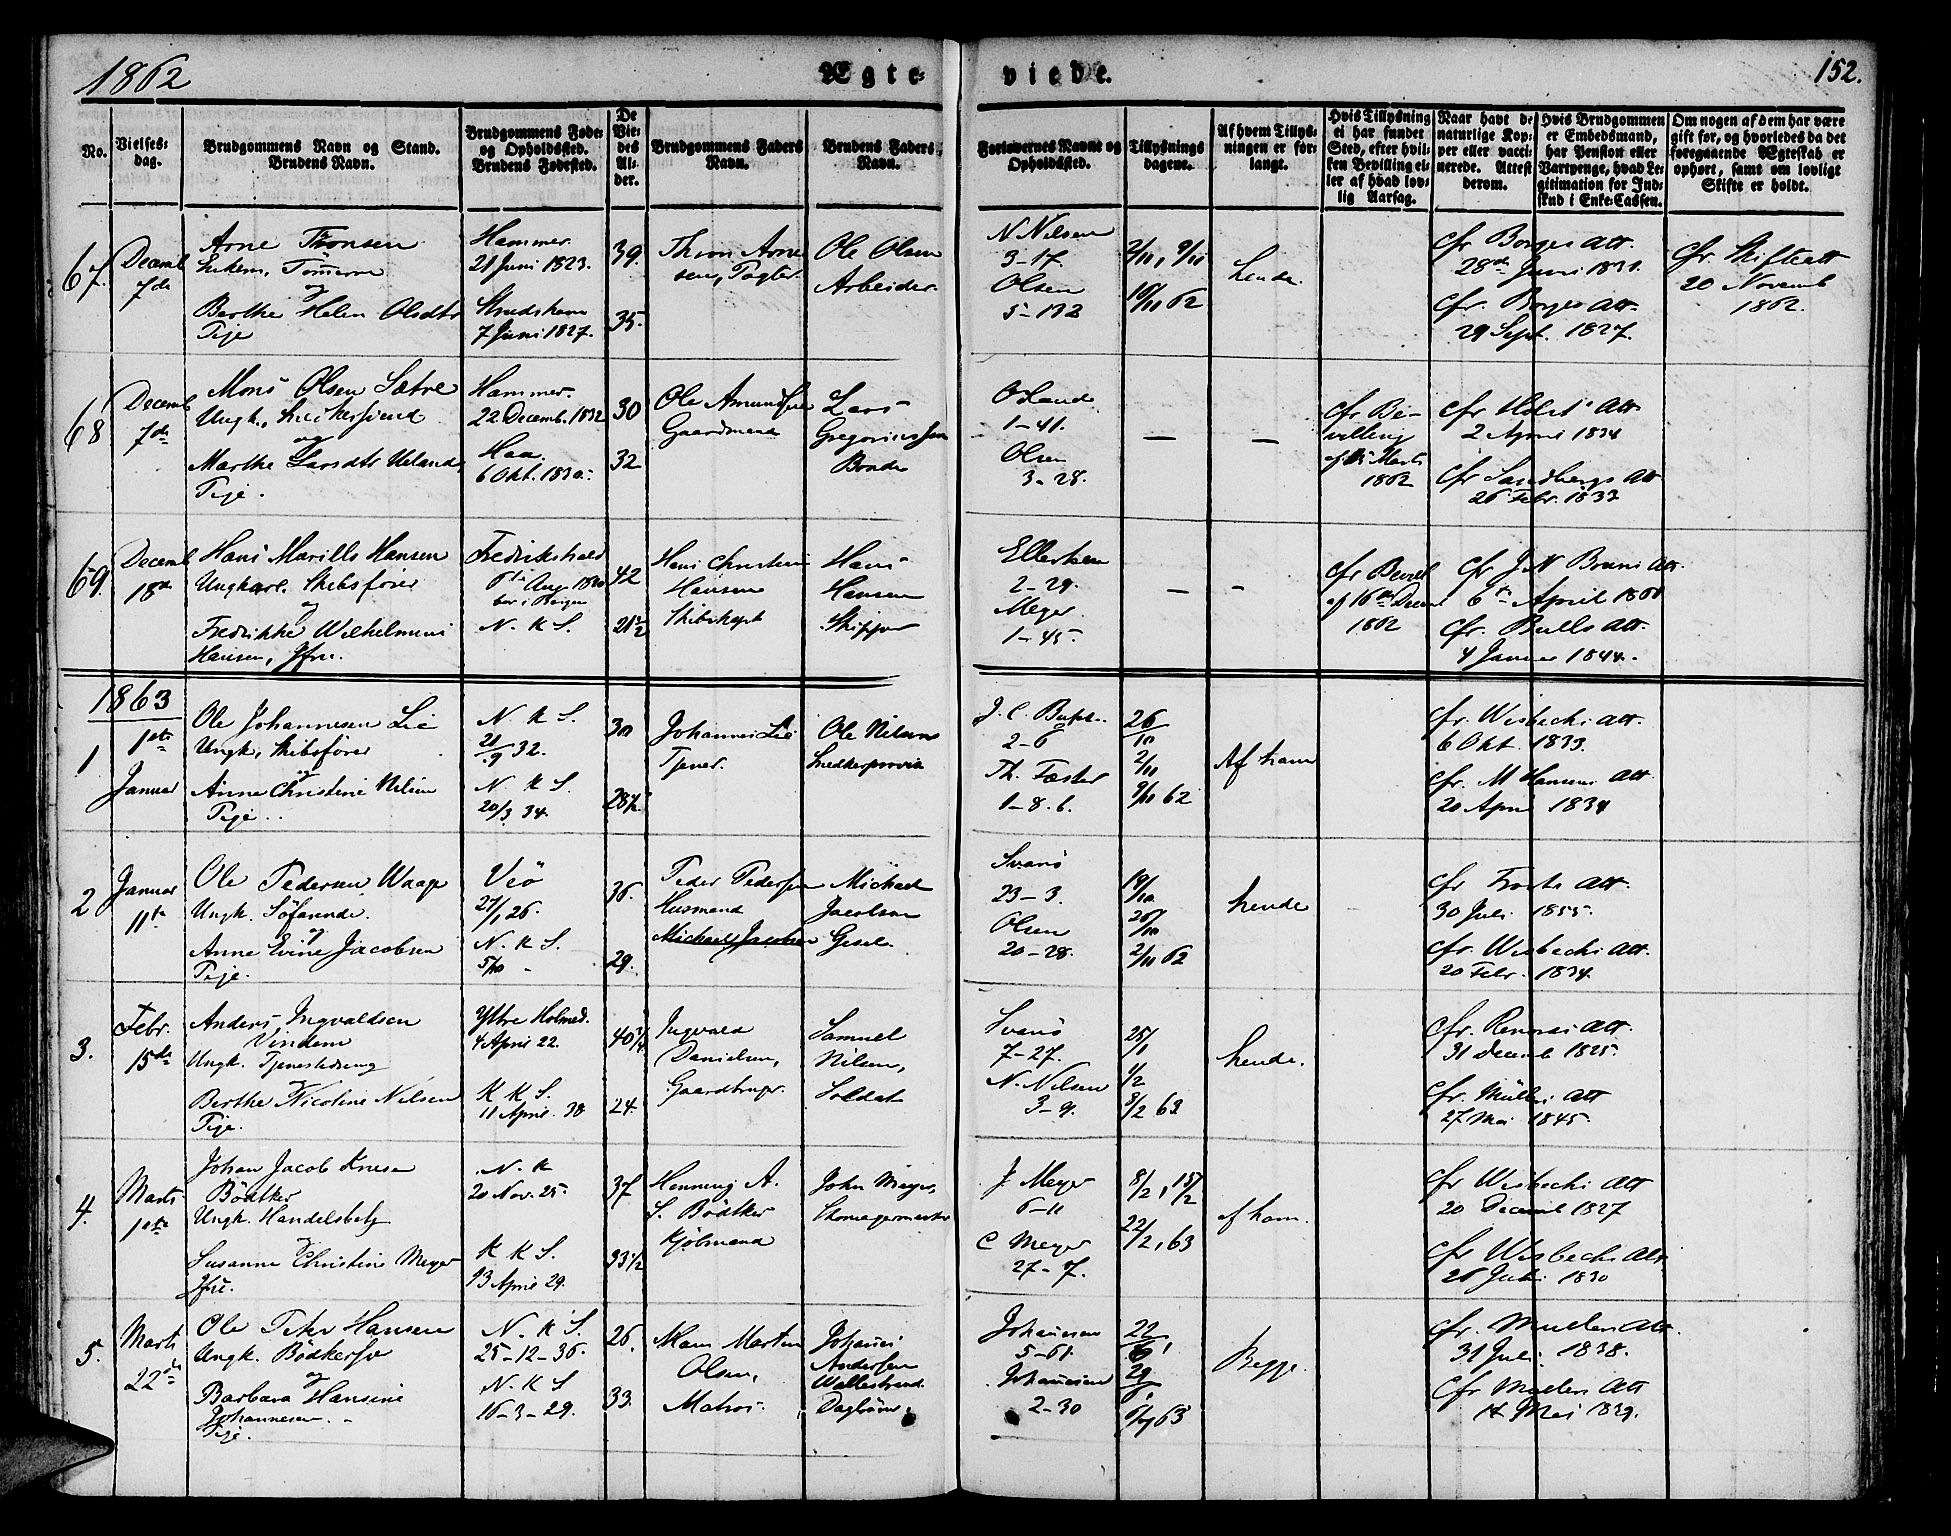 1862
Ægte-
viede.
152.
No.
Vielses-
dag.
Brudgommens Navn og Stand.
Brudens Navn.
Brudgommens Føde-
og Opholdssted.
Brudens Fødested.
De
Vie-
des
Al-
der.
Brudgommens Faders
Navn.
Brudens Faders
Navn.
Forlovernes Navne og
Opholdssted.
Tillysnings
dagene.
Af hvem Tillys-
ningen er for-
langt.
Hvis Tillysning
ei har fundet
Sted, efter hvil-
ken Bevilling el-
ler af hvad lov-
lig Aarsag.
Naar havt de
naturlige Kop-
per eller vacci-
nerede. Attest
derom.
Hvis Brudgommen
er Embedsmand,
har Pension eller
Vartpenge, hvad Le-
gitimation for Ind-
skud i Enke-Cassen.
Om nogen af dem har være
gift før, og hvorledes da det
foregaaende Ægteskab er
ophørt, samt om lovligt
Skifte er holdt.
67.
Decemb
7de
Arne
Enkem, Tømerm
og
Berthe Helen Olsdtr
Pige
Hammer
21 Juni 1823.
7 Juni 1827.
39.
35.
Arne
sen,
Ole Olsen
Arbeider.
N Nilsen
3-17.
Olsen
5-132
2/11, 9/11
16/11 62
hende.
cfr Borges Att.
28de Juni 1831.
cfr. Borges Att.
29 Sept. 1827.
Cfr. Skifteatt
20 Novemb
1862.
68
Decemb
7de
Mons Olsen Sætre
Ungk., Snedkersvend
og
Marthe Larsdtr Ueland,
Pige.
Hammer.
22 Decemb. 1832
Haa.
6 Okt. 1830.
30
32
Ole Amundsen
Gaardmand
Lars
Gregoriussen
Bonde
1-41.
Olsen
3-28.
—
—
cfr Be-
villing
af Marts
1862
cfr Holst's Att.
2 April 1834
cfr Sandbergs Att
26 Febr. 1833
69.
Decemb
18de
Hans Marills Hansen
Ungkarl. Skibsfører
og
Fredrikke Wilhelmine
Hansen, Jfr.
Fredrikshald
6te Aug 1820
bor i Bergen
N. K S.
42
21 1/2
Hans Christian
Hansen
Skibskapt
Hans
Hansen
Skipper
2-29.
Meyer
1-45.
—
-
cfr Bevill
af 16de Decemb
1862
cfr J. N Bruns Att.
6te April 1860
cfr. Bulls Att.
4 Januar 1844.
1863
1
1ste
Januar
Ole Johannesen Lie
Ungk, Skibsfører
og
Anne Christine Nilsen
Pige.
N K S.
21/9 32.
N. K S.
20/3 34.
30
28 1/2
Johannes Lie
Tjener.
Ole Nilsen
J. C.
2-6
Th. Fæster
1-8.6.
26/10
2/11
9/11 62
Af ham
cfr. Wisbechs Att.
6 Okt. 1833.
cfr. M Hansens Att.
20 April 1834
2
Januar
11te
Ole Pedersen Waage
Ungk. Søfarende.
og
Anne Evine Jacobsen
Pige.
Veø
27/1 26.
N. K S.
5/10
36.
29.
Peder Pedersen
Husmand
Michael Jacobsen
Michael
Jacobsen
Gesel.
Svanø
23-3.
Olsen
20-28.
19/10
26/10
2/11 62
hende
cfr Frosts Att.
30 Juli 1855.
cfr. Wisbechs Att.
20 Febr. 1834.
3.
Febr.
15de
Anders Ingvaldsen
Vindem
Ungk. Tjenestedreng
Berthe Nicoline Nilsen
Pige.
Yttre Holmed.
4 April 22.
K K S.
11 April 38
40 3/4
24.
Ingvald
Danielsen,
Gaardbruger.
Samuel
Nilsen,
Soldat
Svanø
7-27.
N. Nilsen
3-9.
25/1
1/2
8/2 63
hende.
cfr. Att.
31 Decemb 1825.
cfr. Müllers Att
27 Mai 1845.
4.
Marts
1ste
Johan Jacob
Bödtker
Ungk. Handelsbetj
og
Susanne Christine Meyer
Jfr.
N. K
20 Nov. 25.
K K S.
13 April 29.
37
33 1/2
Henning A.
S. Bödtker
Kjøbmand
John Meyer,
Skomagermester
J. Meyer
6-11
C Meyer
27-7.
8/2, 15/2
22/2, 63
af ham.
cfr Wisbechs Att
20 Decemb 1827
cfr Wisbechs Att.
26 Juli 1830
5.
Marts
22de
Ole Peter Hansen
Ungk. Bødkersv
og
Barbara Hansine
Johannesen
Pige.
N. K S.
25-12-36.
N. K S
16-3-29.
26.
33.
Hans Morten
Olsen,
Matros.
Johannes
Andersen
Johannesen
5-61.
Johannesen
2-30
22/
29/
63
Begge.
cfr. Mullers Att.
31 Juli 1838.
cfr Mullers Att
14 Mai 1839.